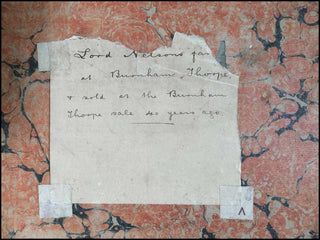 Lord Nelsons
at Burnham Thorpe
& sold at the Burnham
Thorpe sale 40 years ago